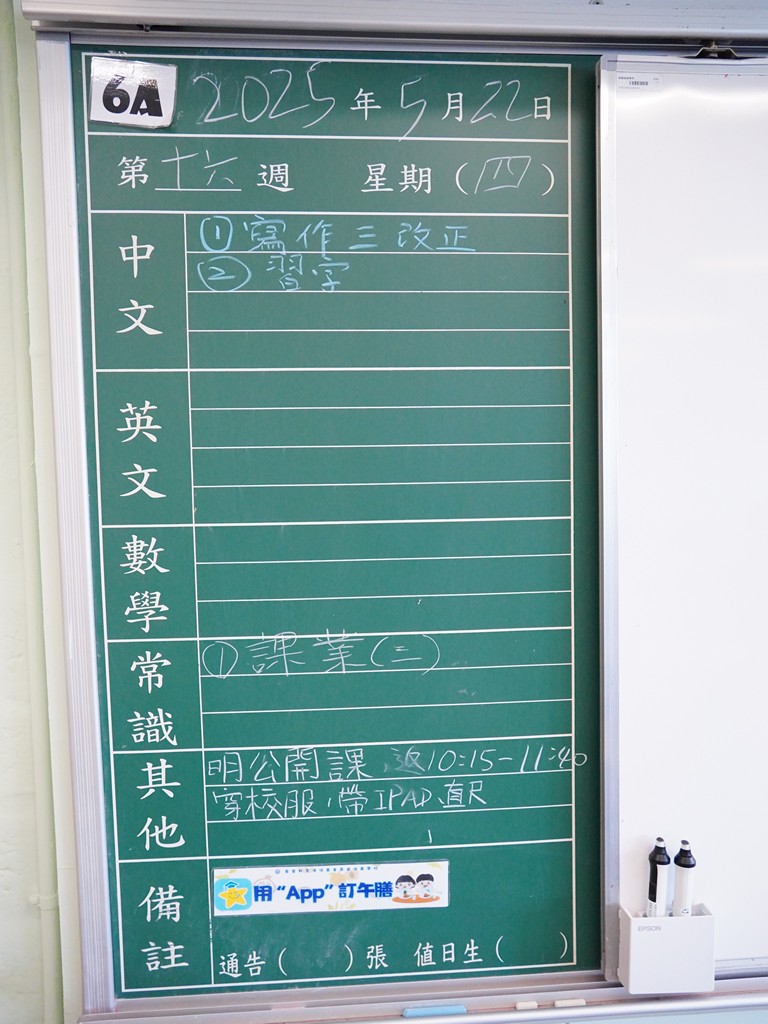 6A 2025年5月22日
第十六週 星期(四)
中文
①寫作三改正
②習字
英文
數學
常識
①課業(三)
其他
明公開課 返10:15-11:40
穿校服,帶IPAD、直尺
備註
用“App”訂午膳
通告( )張 值日生( )
EPSON